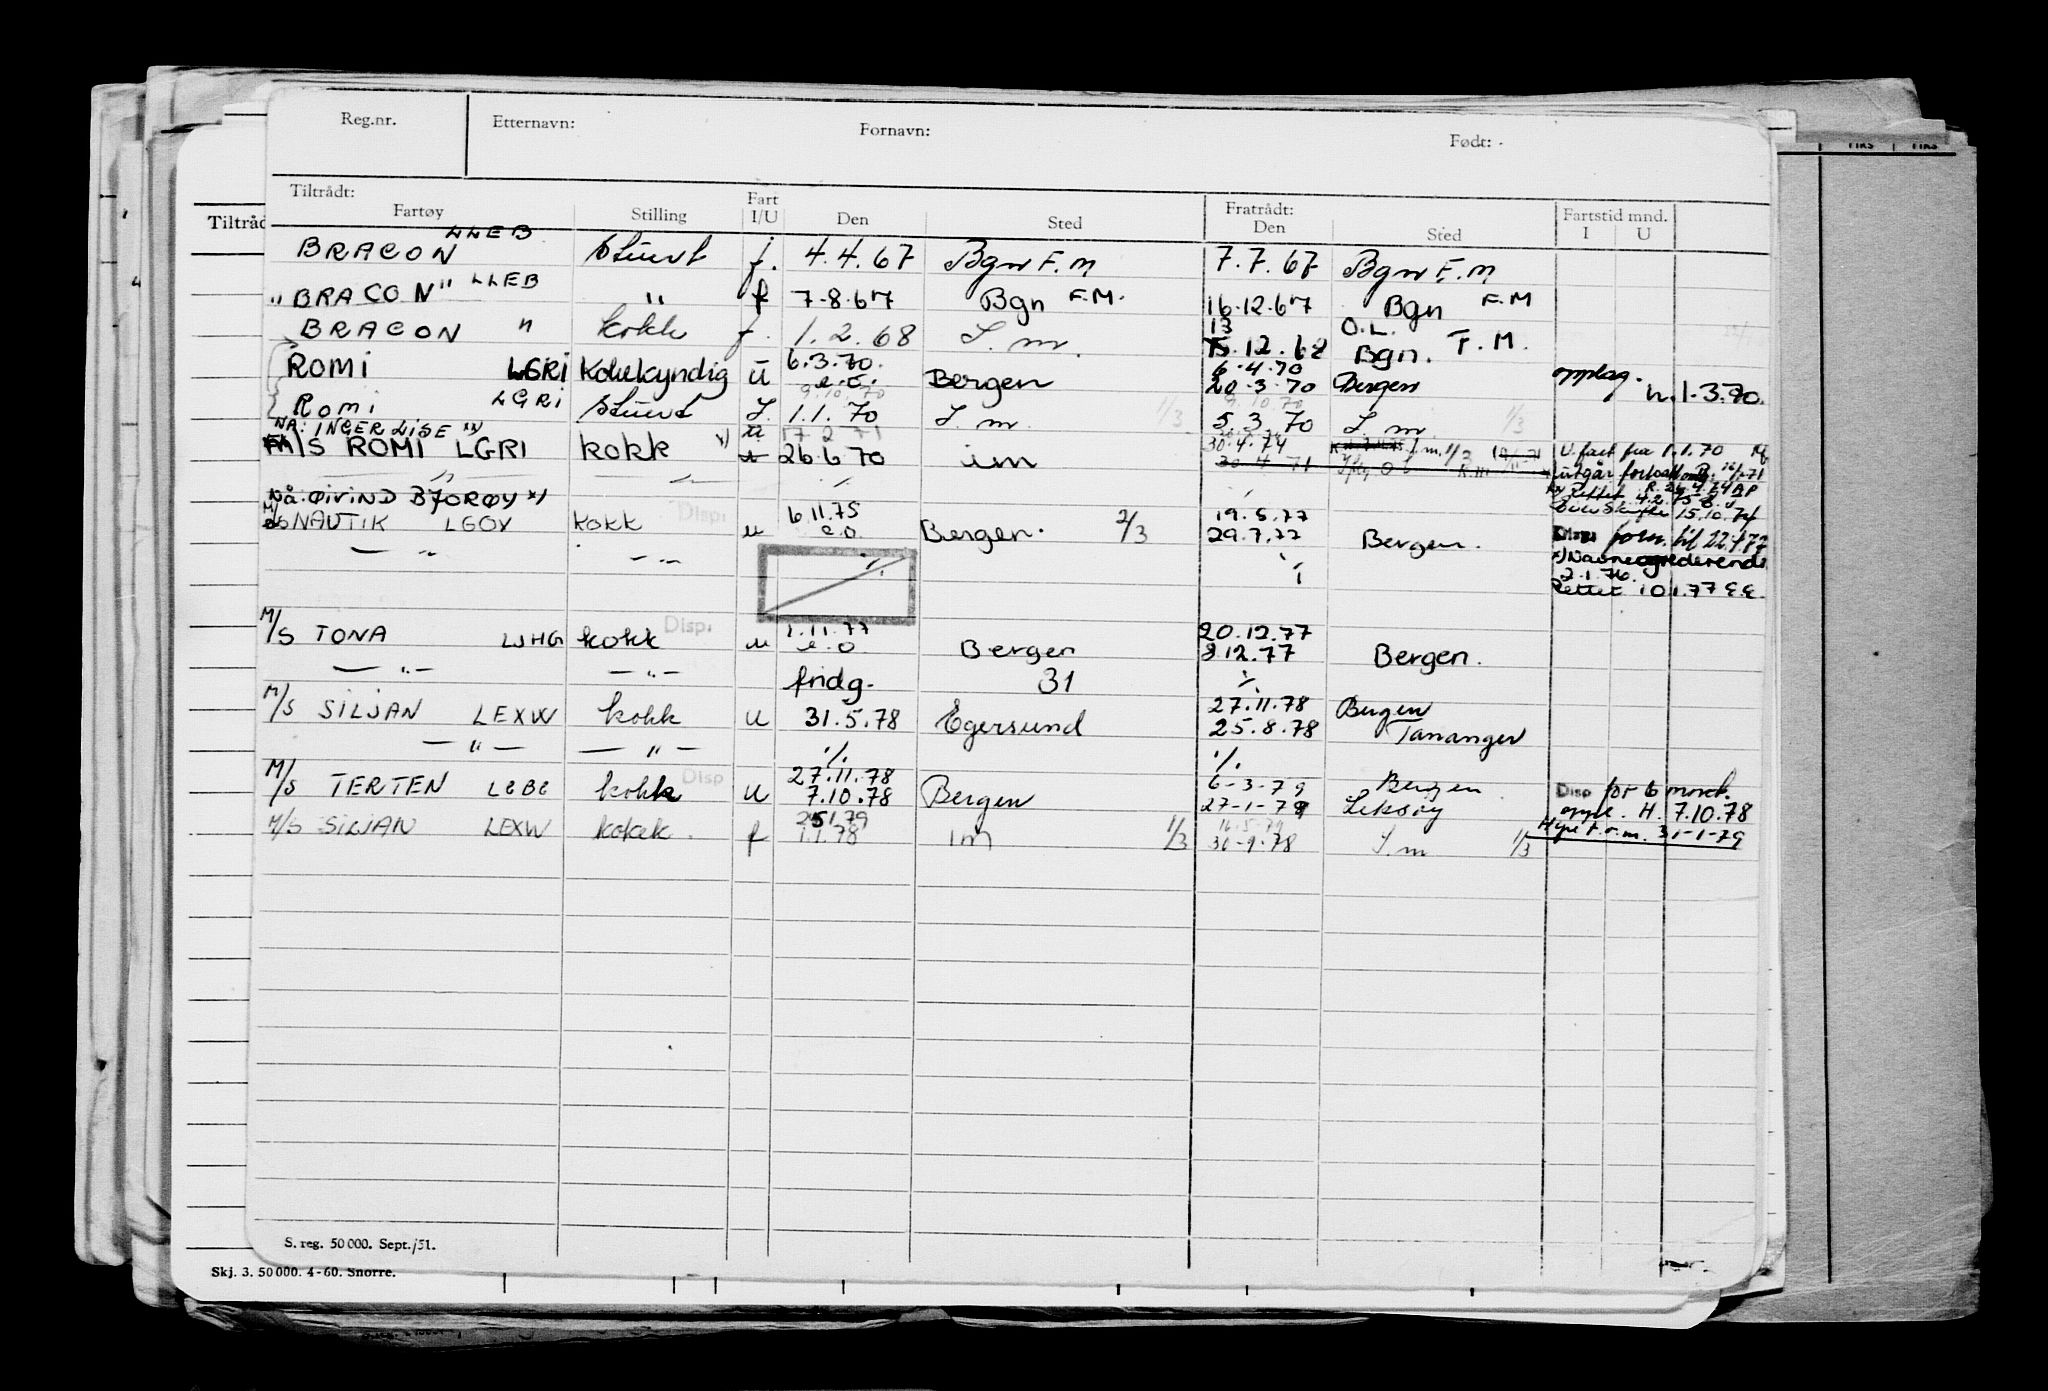 Reg.nr. Etternavn: Fornavn: Født:
Tiltrådt: Fart Fratrådt: Fartstid mnd.
Fartøy Stilling I/U Den Sted Den Sted I U
Tiltråd
LLEB
BRACON Stuert f. 4.4.67 Bgn F.M 7.7.67 Bgn F.M
"BRACON" LLEB " f 7-8-67 Bgn F.M. 16.12.67 Bgn F.M
13 O.L.
BRACON " kokk f. 1.2.68 S.m. 15.12.68 Bgn. F.M.
6.3.70. 6.4.70
ROMI LGRI Kokkyndig U e.o. Bergen 20.3.70 Bergen opplag. h.1.3.70.
9.10.70 9.10.70
Romi LGRI Stuert I. 1.1.70 S.m. 1/3 5.3.70 S.m. 1/3
NÅ: INGER LISE x) 17 2 71 30.4.74 U.fart fra 1.1.70
M/S ROMI LGRI kokk x) u 26.6.70 im 30.4.71
Nå: ØIVIND BJORØY x) 6.11.75 19.5.77
M/S NAUTIK LGOV kokk Disp. u e.o Bergen. 2/3 29.7.77 Bergen. Disp. form. til 22.7.77
— " — — " — ./. ./. x) Navneogrederendr
2.1.76.
Rettet 10.1.77 E.E.
M/S TONA LJHG kokk Disp. u 1.11.77 e.o Bergen 20.12.77 8.12.77 Bergen.
— " — — " — fridg. 31 ./.
27.11.78 Bergen
M/S SILJAN LEXW kokk U 31.5.78 Egersund 25.8.78 Tananger
— " — — " — ./. ./.
27.11.78 6-3-79 Bergen Disp for 6 mond.
M/S TERTEN LCBC kokk Disp U 7.10.78 Bergen 27-1-79 Leksøy oppl. H. 7.10.78
25.1.79 16.5.79 Hyre f.o.m. 31-1-79
M/S SILJAN LEXW kokk. f 1.1.78 im 1/3 30-9-78 S.m 1/3
S. reg. 50 000. Sept./51.
Skj. 3. 50 000. 4-60. Snorre.